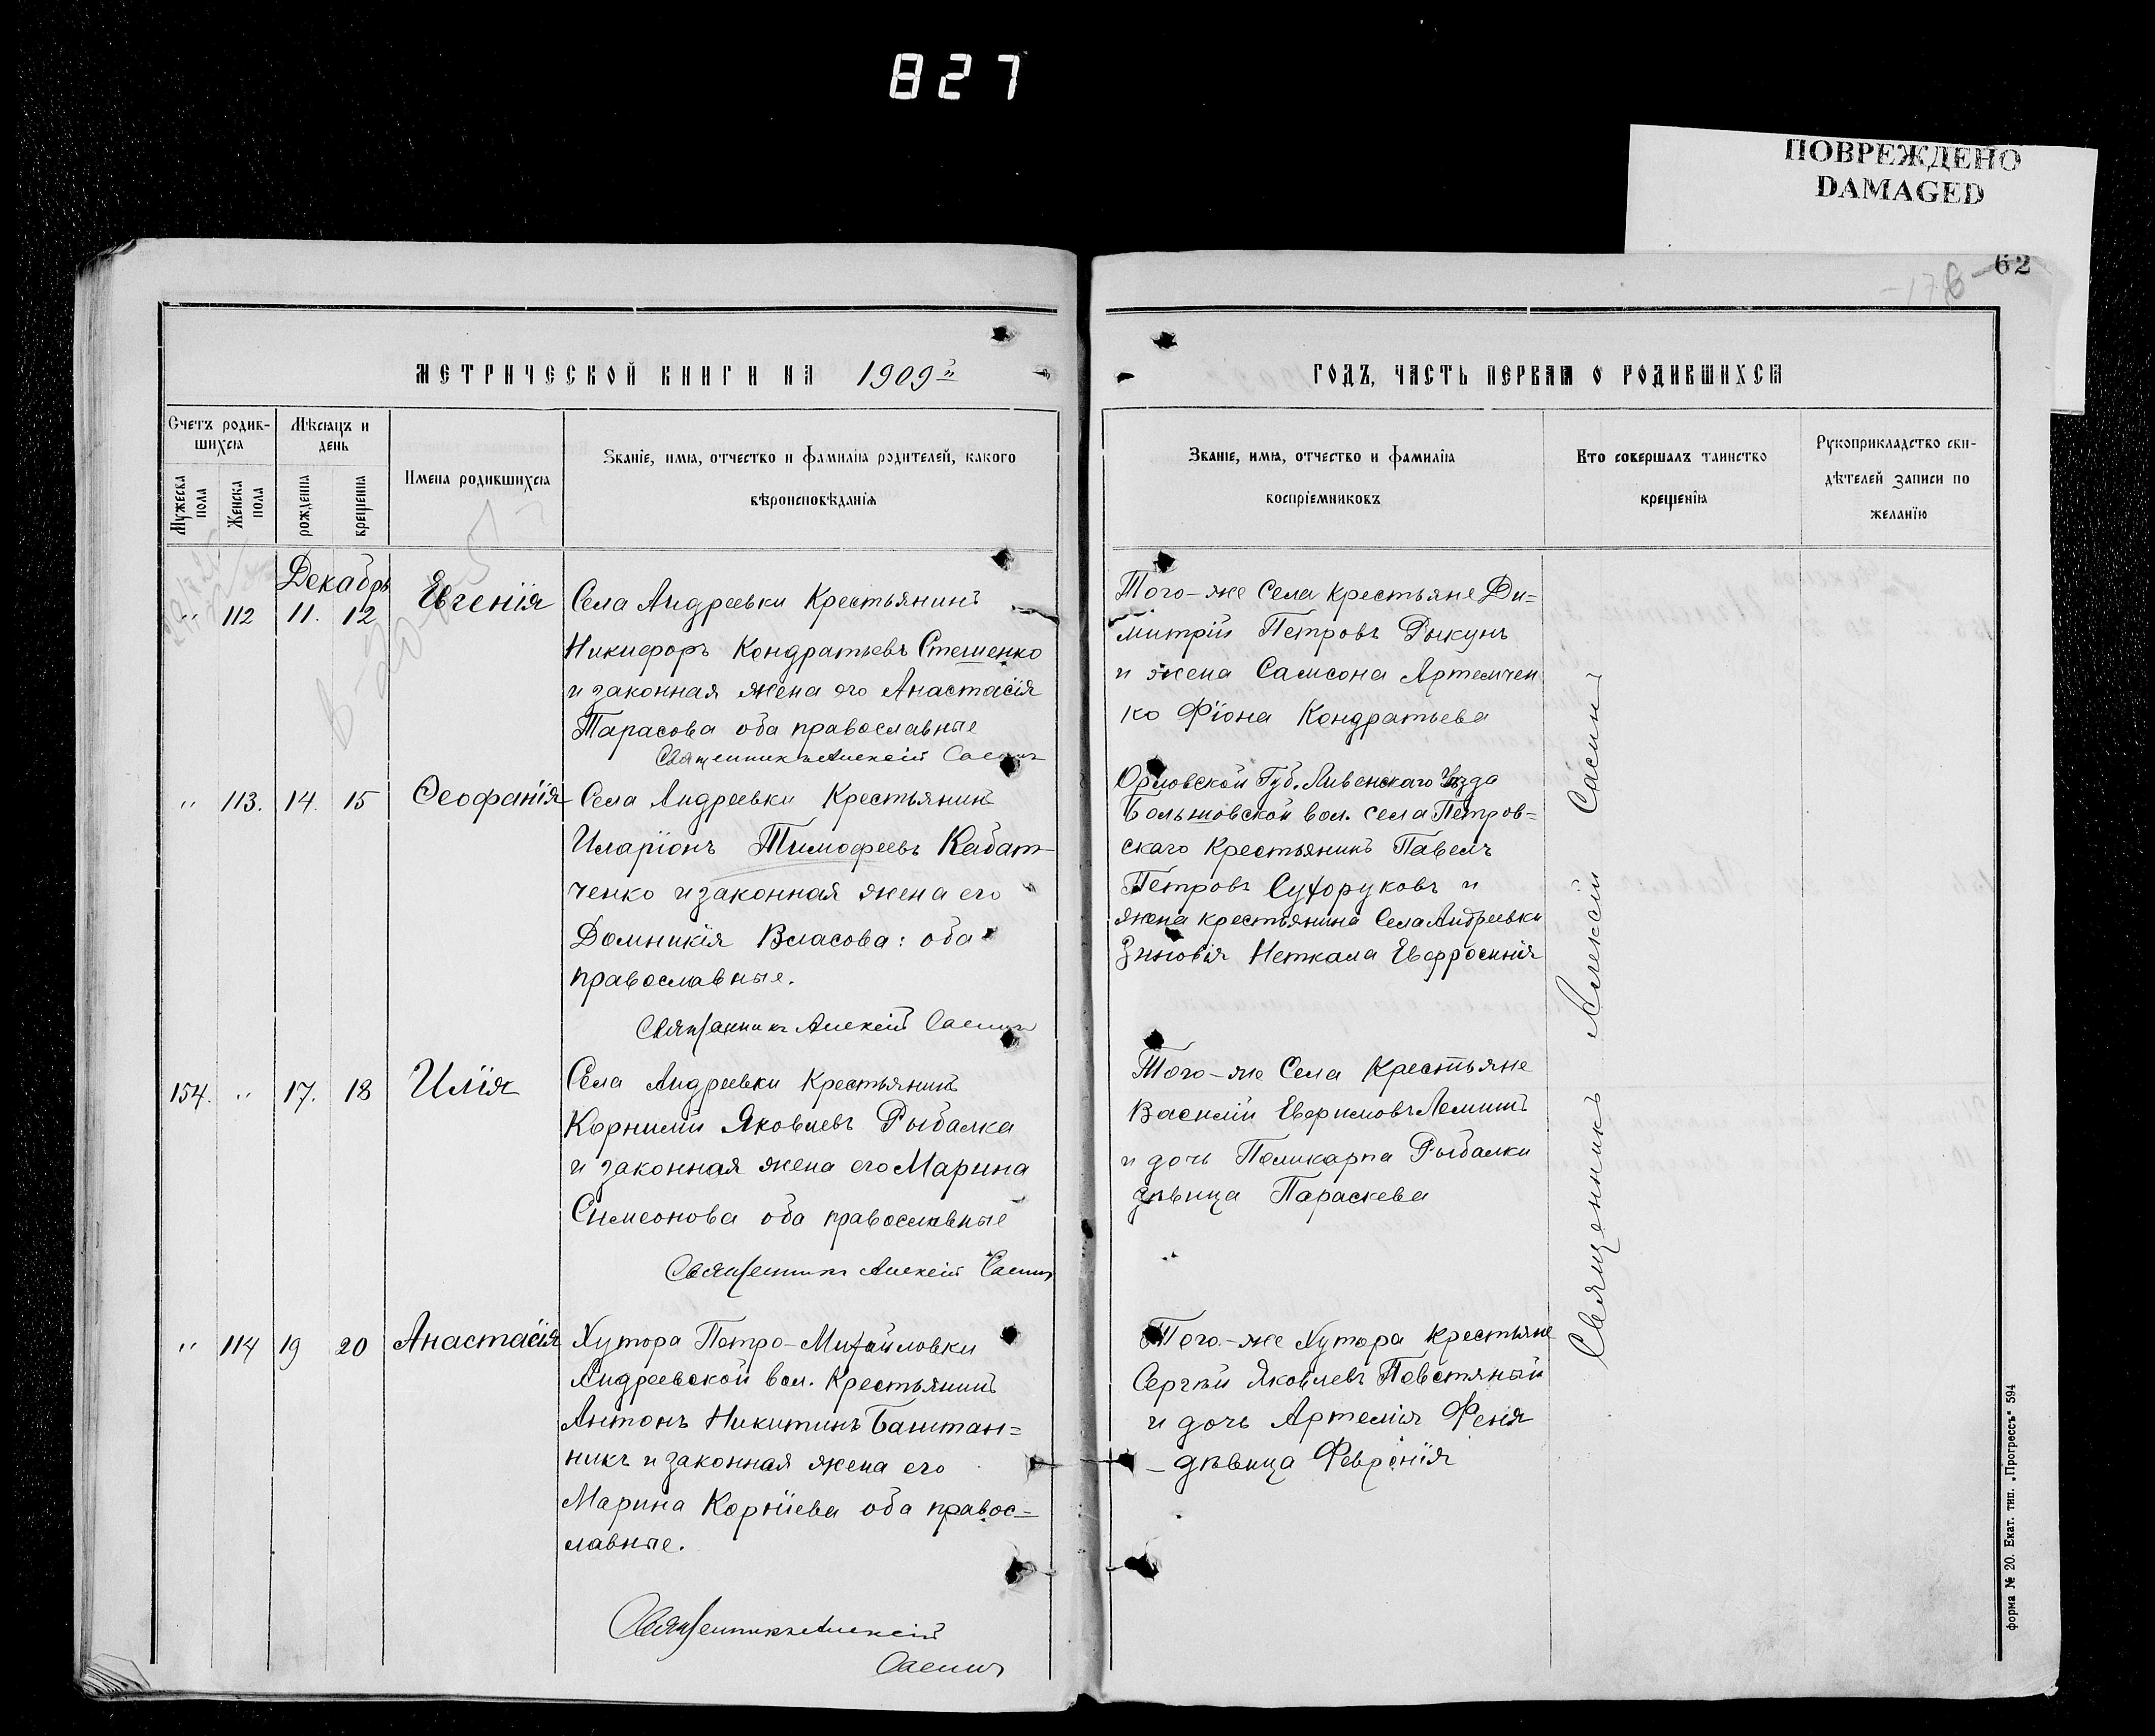 827
ПОВРЕЖДЕНО
DAMAGED
62
МЕТРИЧЕСКОЙ КНИГИ НА 1909й
Счетъ родив-
шихся
Мужеска пола
Женска пола
Мѣсяцъ и
день
рожденія
крещенія
Имена родившихся
Званіе, имя, отчество и фамилія родителей, какого
вѣроисповѣданія
Декабрь
" 112 11. 12 Евгенія
Села Андреевки Крестьянинъ
Никифоръ Кондратьевъ Стешенко
и законная жена его Анастасія
Тарасова оба православные
Священникъ Алексій Сасинъ
" 113. 14. 15 Ѳеофанія
Села Андреевки Крестьянинъ
Иларіонъ Тимофеевъ Кабат-
ченко и законная жена его
Домникія Власова: оба
православные.
Священникъ Алексій Сасинъ
154. " 17. 18 Илія
Села Андреевки Крестьянинъ
Корнилій Яковлевъ Рыбалка
и законная жена его Марина
Симеонова оба православные
Священникъ Алексій Сасинъ
" 114 19 20 Анастасія
Хутора Петро-Михайловки
Андреевской вол. Крестьянинъ
Антонъ Никитинъ Баштан=
никъ и законная жена его
Марина Корніева оба правос=
лавные.
Священникъ Алексій
Сасинъ
ГОДЪ, ЧАСТЬ ПЕРВАЯ О РОДИВШИХСЯ
Званіе, имя, отчество и фамилія
воспріемниковъ
Кто совершалъ таинство
крещенія
Рукоприкладство сви-
дѣтелей записи по
желанію
Того-же Села крестьяне Ди=
митрій Петровъ Рыкунъ
и жена Самсона Артемчен
ко Фіона Кондратьева
Орловской Губ. Ливенскаго Уѣзда
вол. села Петров-
скаго Крестьянинъ Павелъ
Петровъ Сухоруковъ и
жена крестьянина Села Андреевки
Зиновія Неткала Евфросинія
Того-же Села Крестьяне
Василій Евфимовъ
и дочь Поликарпа Рыбалки
дѣвица Параскева
Того-же Хутора крестьяне
Сергѣй Яковлевъ Повстяный
и дочь Артемія Феня
- дѣвица Феврснія
Священникъ Алексій Сасинъ
форма № 20. Екат. тип. „Прогрессъ“ 594